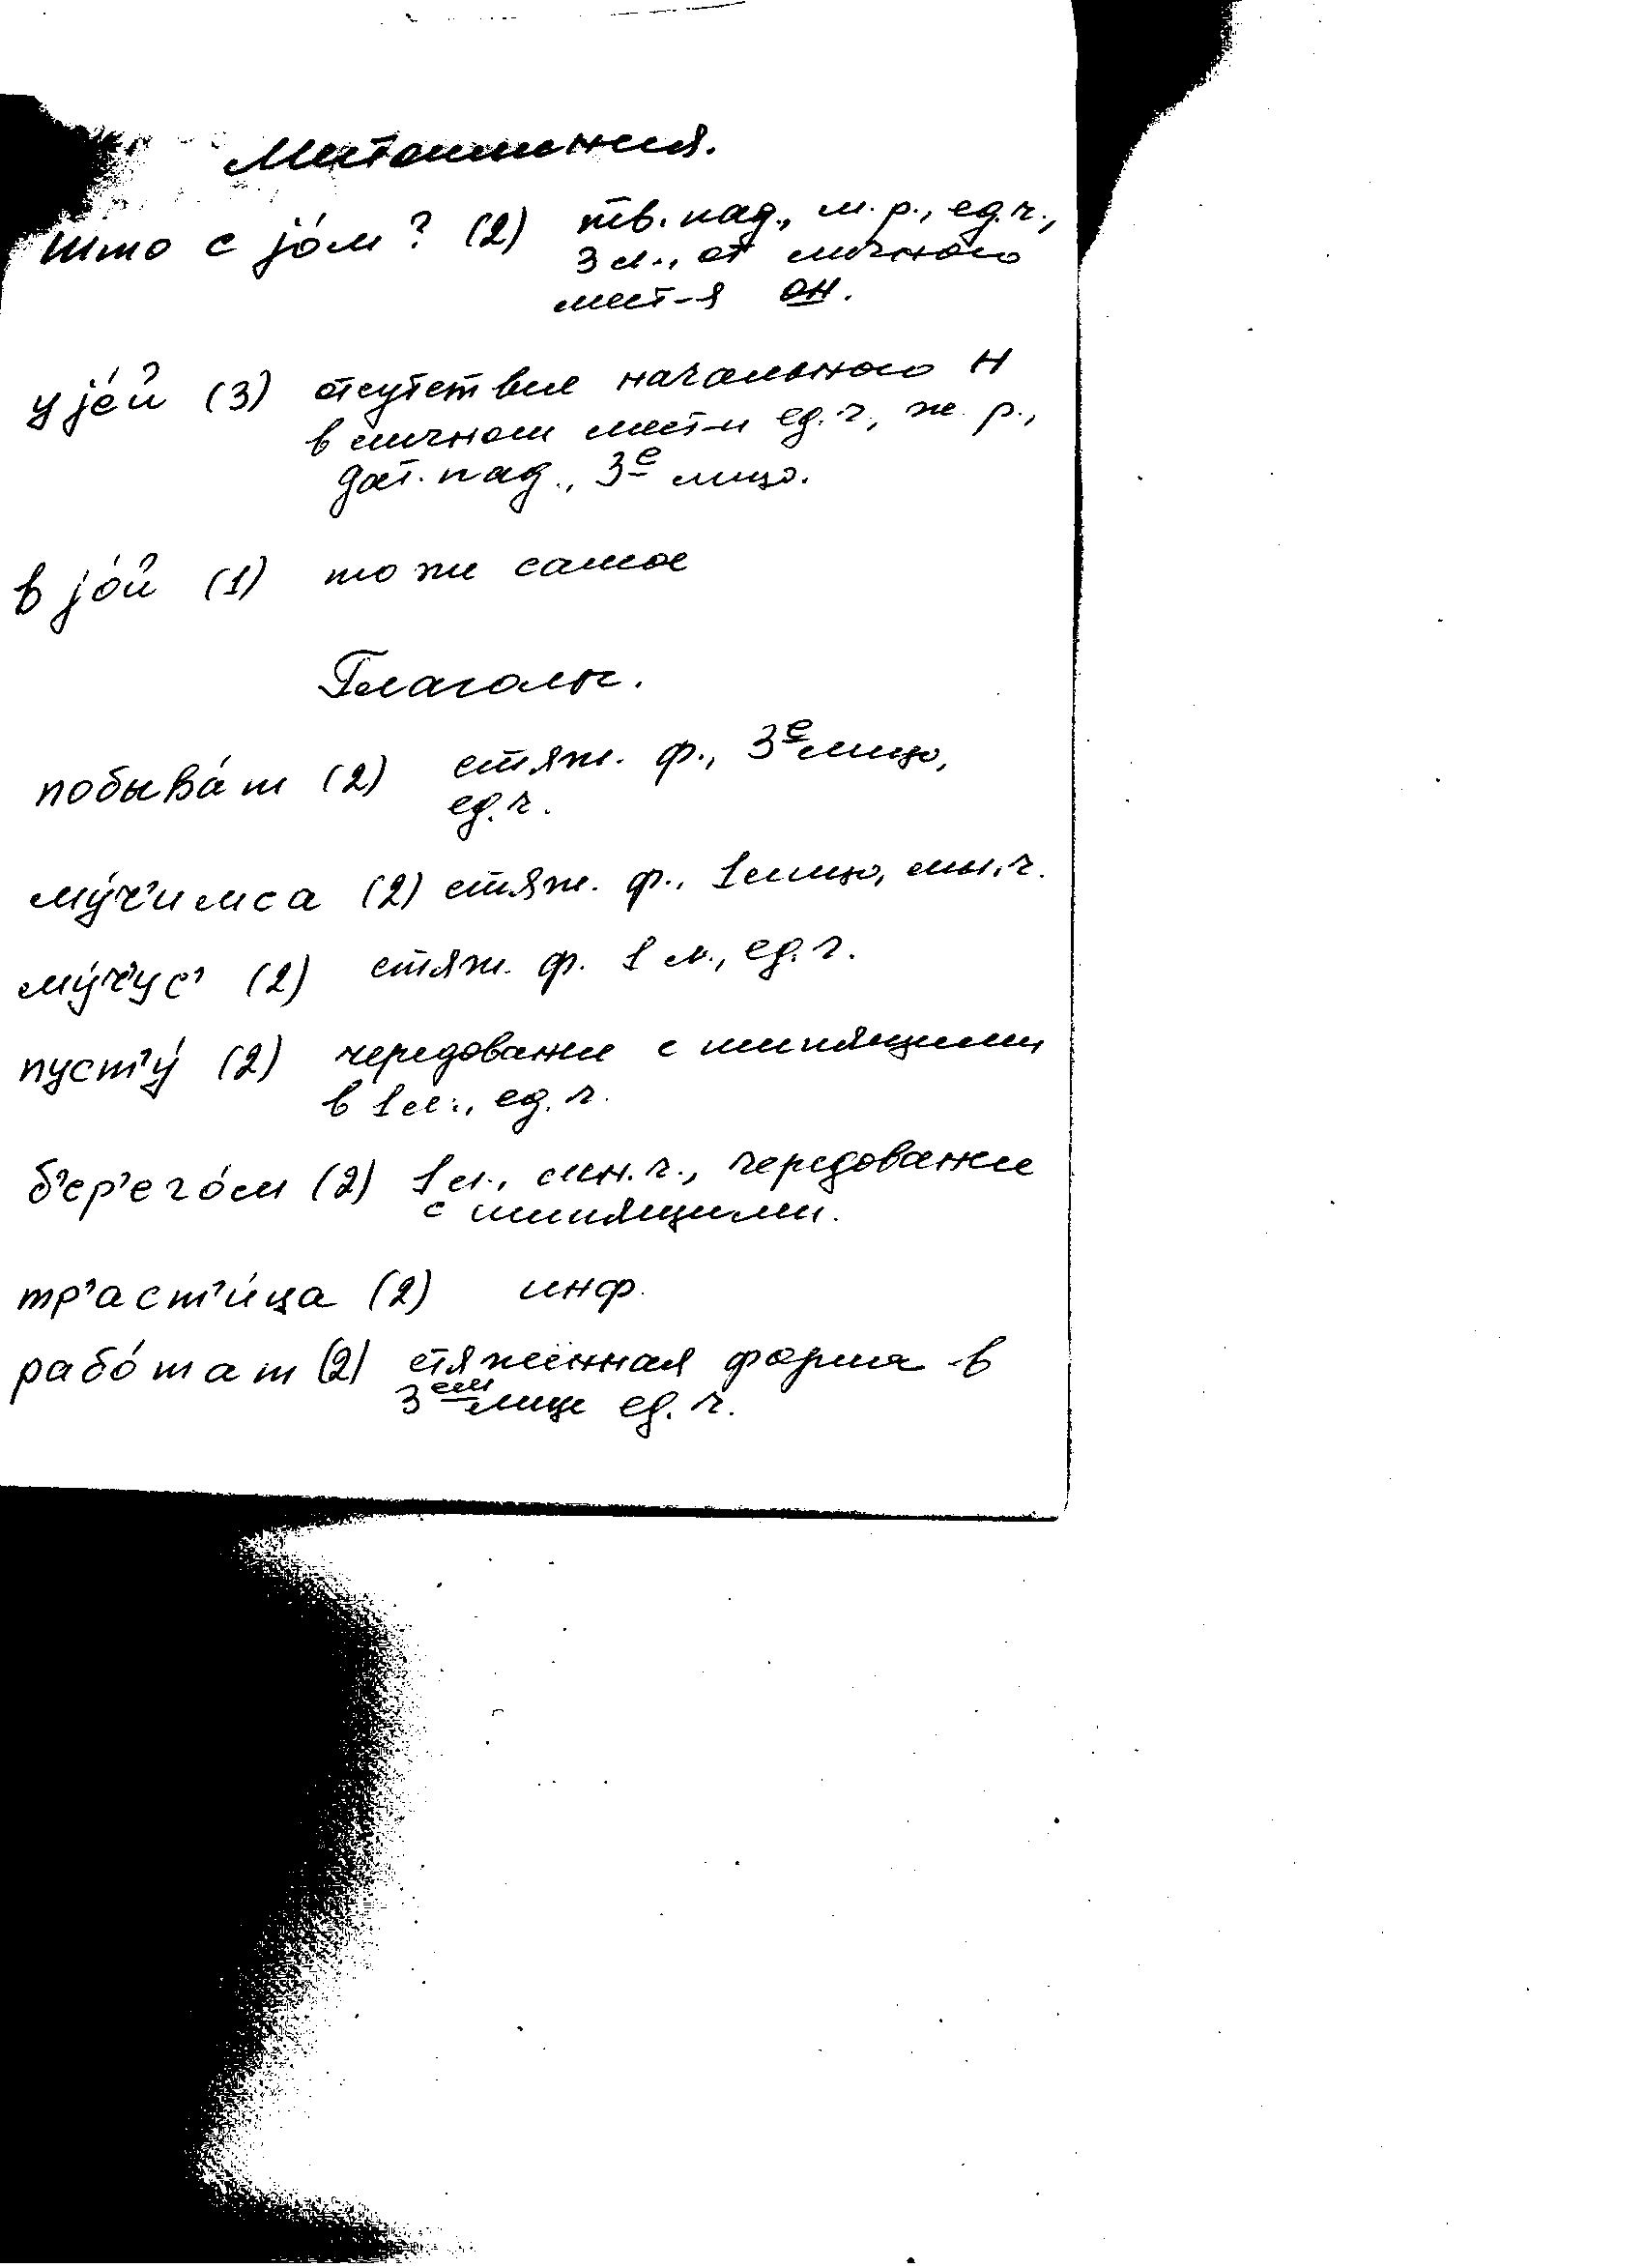 Местоимения.
што с jо́м? (2) тв. пад., м. р., ед. ч.,
3 л., от личного
мест-я он.
у jе́й (3) отсутствие начального Н
в личном мест-и ед. ч., ж. р.,
дат. пад., 3е лицо.
в jо́й (1) то же самое
Глаголы.
побыва́т (2) стяж. ф., 3е лицо,
ед. ч.
му́ч'имса (2) стяж. ф., 1 лицо, мн. ч.
му́ч'ус' (2) стяж. ф. 1 л., ед. ч.
пуст'у́ (2) чередование с шипящими
в 1 л., ед. ч.
б'ер'его́м (2) 1 л., мн. ч., чередование
с шипящими.
тр'аст'и́ца (2) инф.
рабо́тат (2) стяженная форма в
3ем лице ед. ч.